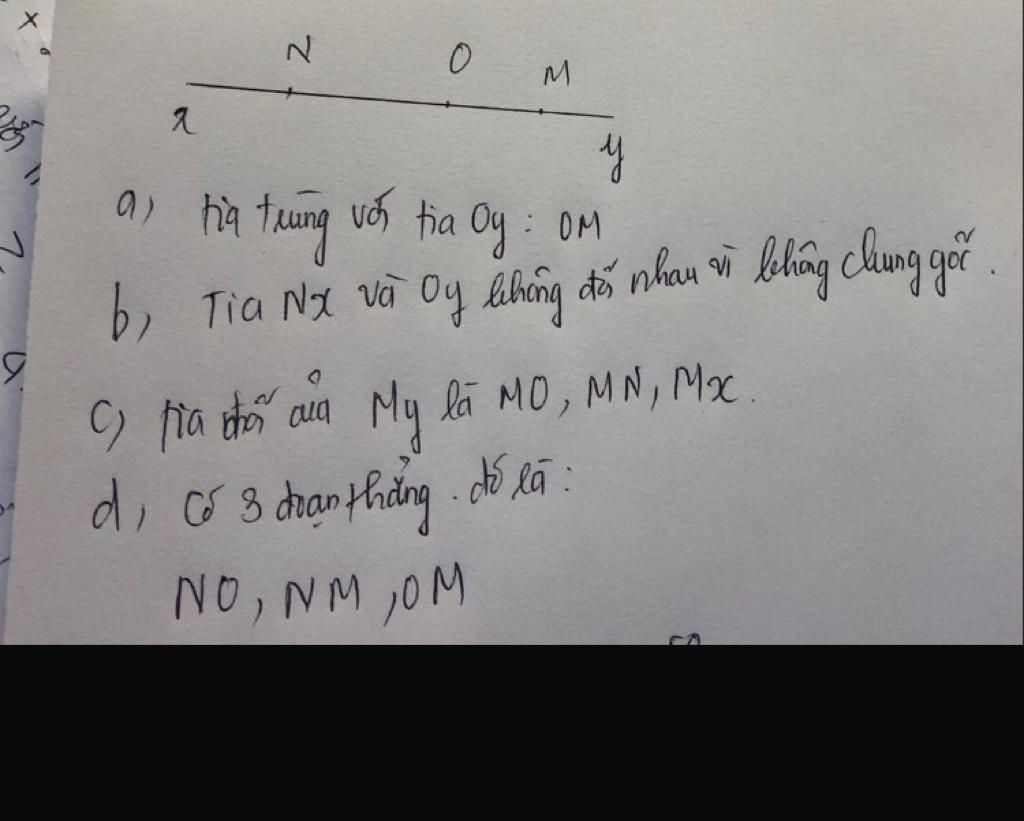 N O M
x y
a) tia trùng với tia Oy : OM
b) Tia Nx và Oy không đối nhau vì không chung gốc.
c) tia đối của My là MO, MN, Mx.
d) Có 3 đoạn thẳng. đó là :
NO, NM, OM